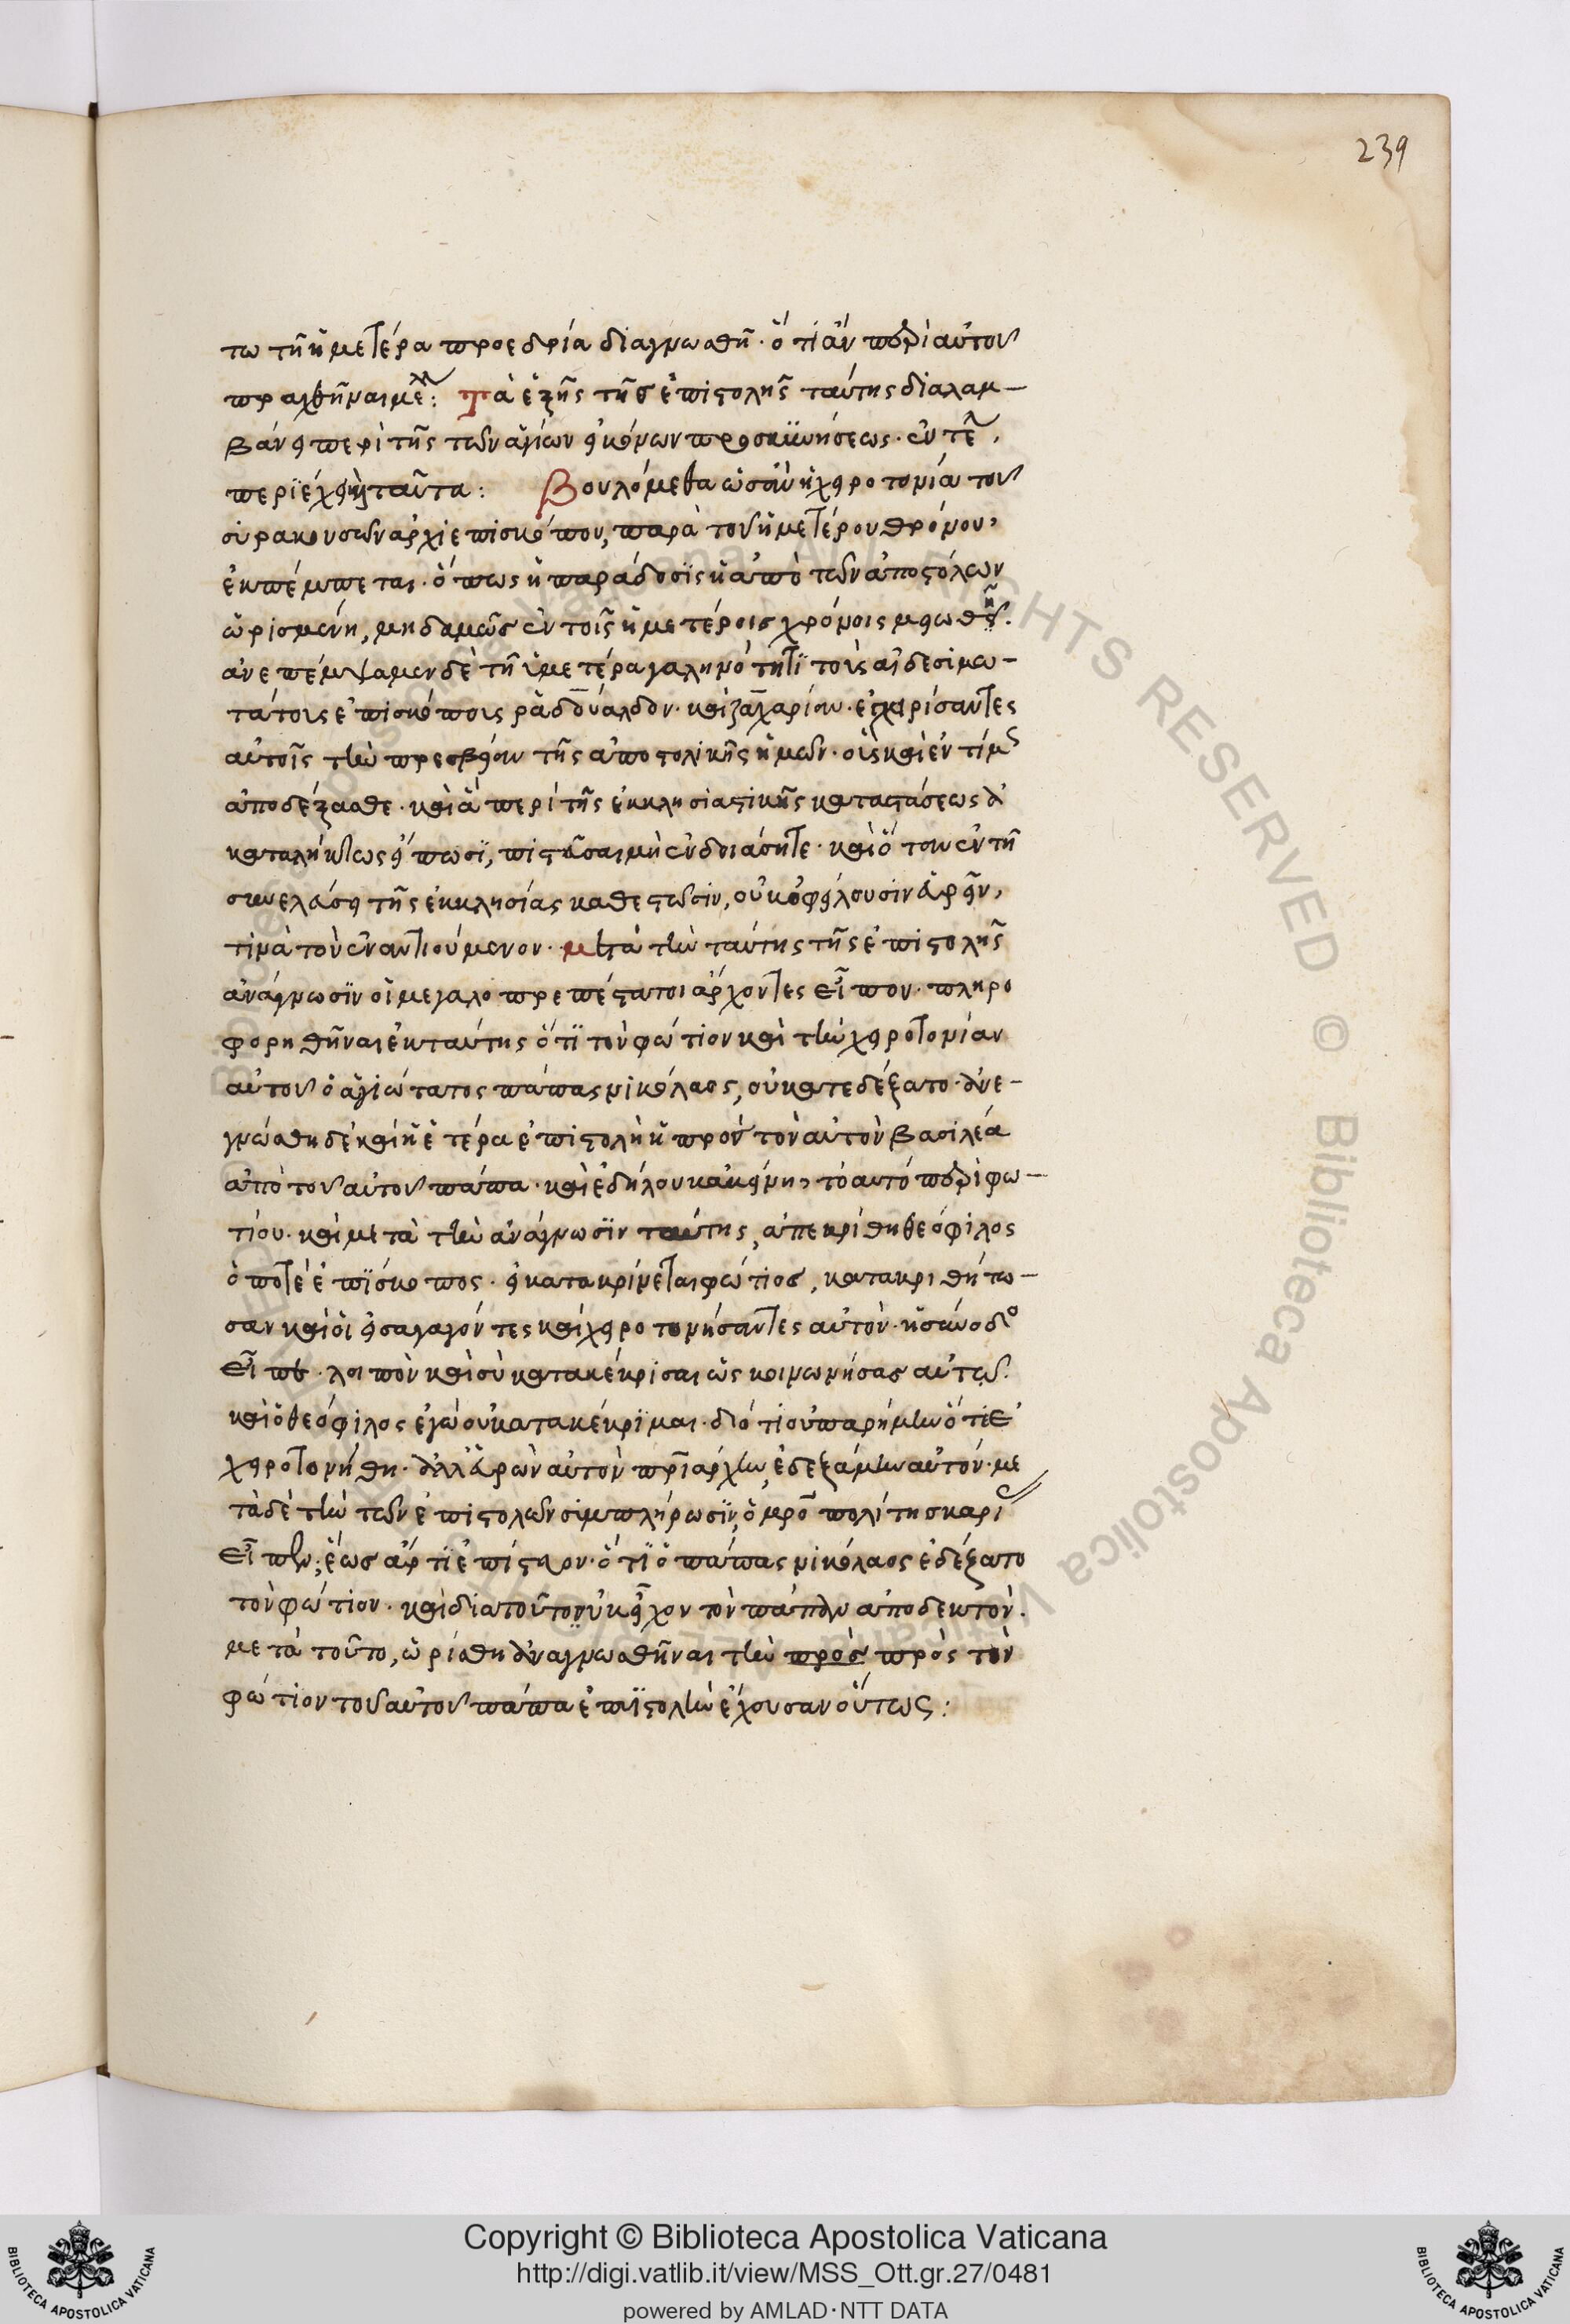 239
τω τῆ ἡμετέρα προεδρία διαγνωσθῆ· ὅ τι ἂν περὶ αὐτοῦ
πραχθῆναι μέλλ: Τὰ ἑξῆς τῆς ἐπιστολῆς ταύτης διαλαμ-
βάνει περὶ τῆς τῶν ἁγίων εἰκόνων προσκυνήσεως· ἐν τέλ,
περιέχει καὶ ταῦτα: Βουλόμεθα ὡσὰν ἡ χειροτονία τοῦ
συρακουσῶν ἀρχιεπισκόπου, παρὰ τοῦ ἡμετέρου θρόνου,
ἐκπέμπεται· ὅπως ἡ παράδοσις ἡ ἀπὸ τῶν ἀποστόλων
ὡρισμένη, μηδαμῶς ἐν τοῖς ἡμετέροις χρόνοις μειωθῆ.
ἀνεπέμψαμεν δὲ τῆ ὑμετέρα γαληνότητι τοὺς αἰδεσιμω-
τάτους ἐπισκόπους ῥαδουάλδον· καὶ ζαχαρίαν· ἐγχειρίσαντες
αὐτοῖς τὴν πρεσβείαν τῆς ἀποστολικῆς ἡμῶν· οὓς καὶ ἐν τίμ
ἀποδέξασθε· καὶ ἃ περὶ τῆς ἐκκλησιαστικῆς καταστάσεως
καταλήκτως εἴπωσι, πιστῶσαι μὴ ἐνδοιάσητε· καὶ ὅτου ἐν τῆ
συνελάσει τῆς ἐκκλησίας καθεστῶσιν, οὐκ ὀφείλουσιν εὑρεῖν,
τινὰ τὸν ἐναντιούμενον· μετὰ τὴν ταύτης τῆς ἐπιστολῆς
ἀνάγνωσιν οἱ μεγαλοπρεπέστατοι ἄρχοντες εἶπον· πληρο
φορηθῆναι ἐκ ταύτης ὅτι τὸν φώτιον καὶ τὴν χειροτονίαν
αὐτοῦ ὁ ἁγιώτατος πάπας νικόλαος, οὐ κατεδέξατο· ἀνε-
γνώσθη δὲ καὶ ἡ ἑτέρα ἐπιστολὴ ἡ πρὸς τὸν αὐτὸν βασιλέα
ἀπὸ τοῦ αὐτοῦ πάπα· καὶ ἐδήλου κἀκείνη, τὸ αυτό περὶ φω-
τίου· καὶ μετὰ τὴν ἀνάγνωσιν ταύτης, ἀπεκρίθη θεόφιλος
ὁ ποτὲ ἐπίσκοπος· εἰ κατακρίνεται φώτιος, κατακριθήτω-
σαν καὶ οἱ εἰσαγαγόντες καὶ χειροτονήσαντες αὐτόν· ἡ σύνοδο
εἶπε· λοιπὸν καὶ σὺ κατακέκρισαι ὡς κοινωνήσας αὐτῶ.
καὶ ὁ θεόφιλος ἐγὼ οὐ κατακέκριμαι· διότι οὐ παρήμην ὅτι ἐ
χειροτονήθη· ἀλλ' εὑρὼν αὐτὸν πριάρχην, ἐδεξάμην αὐτόν· με
τὰ δὲ τὴν τῶν ἐπιστολῶν συμπλήρωσιν, ὁ μροπολίτης καρί
εἶπεν; ἕως ἄρτι ἐπίστευον· ὅτι ὁ πάπας νικόλαος ἐδέξατο
τὸν φώτιον· καὶ δια τοῦτο οὐκ εἶχον τὸν πάπαν ἀποδεκτόν.
μετὰ τοῦτο, ὡρίσθη ἀναγνωσθῆναι τὴν πρὸς πρὸς τὸν
φώτιον τοῦ αὐτοῦ πάπα ἐπιστολὴν ἔχουσαν οὕτως:
Copyright © Biblioteca Apostolica Vaticana
http://digi.vatlib.it/view/MSS_Ott.gr.27/0481
powered by AMLAD·NTT DATA